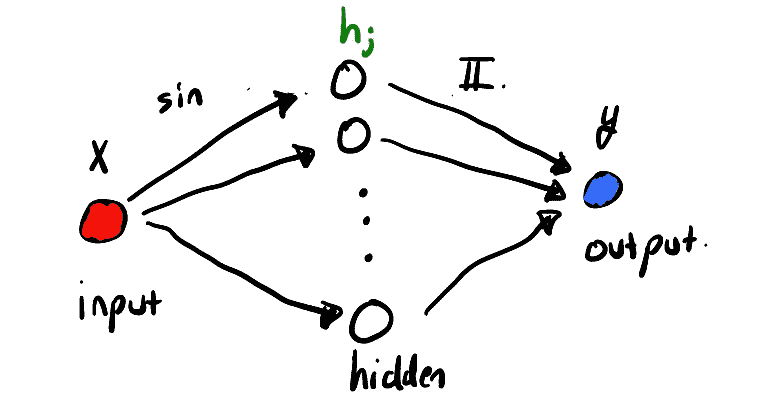 h_j
sin
II.
x
y
input
output.
hidden